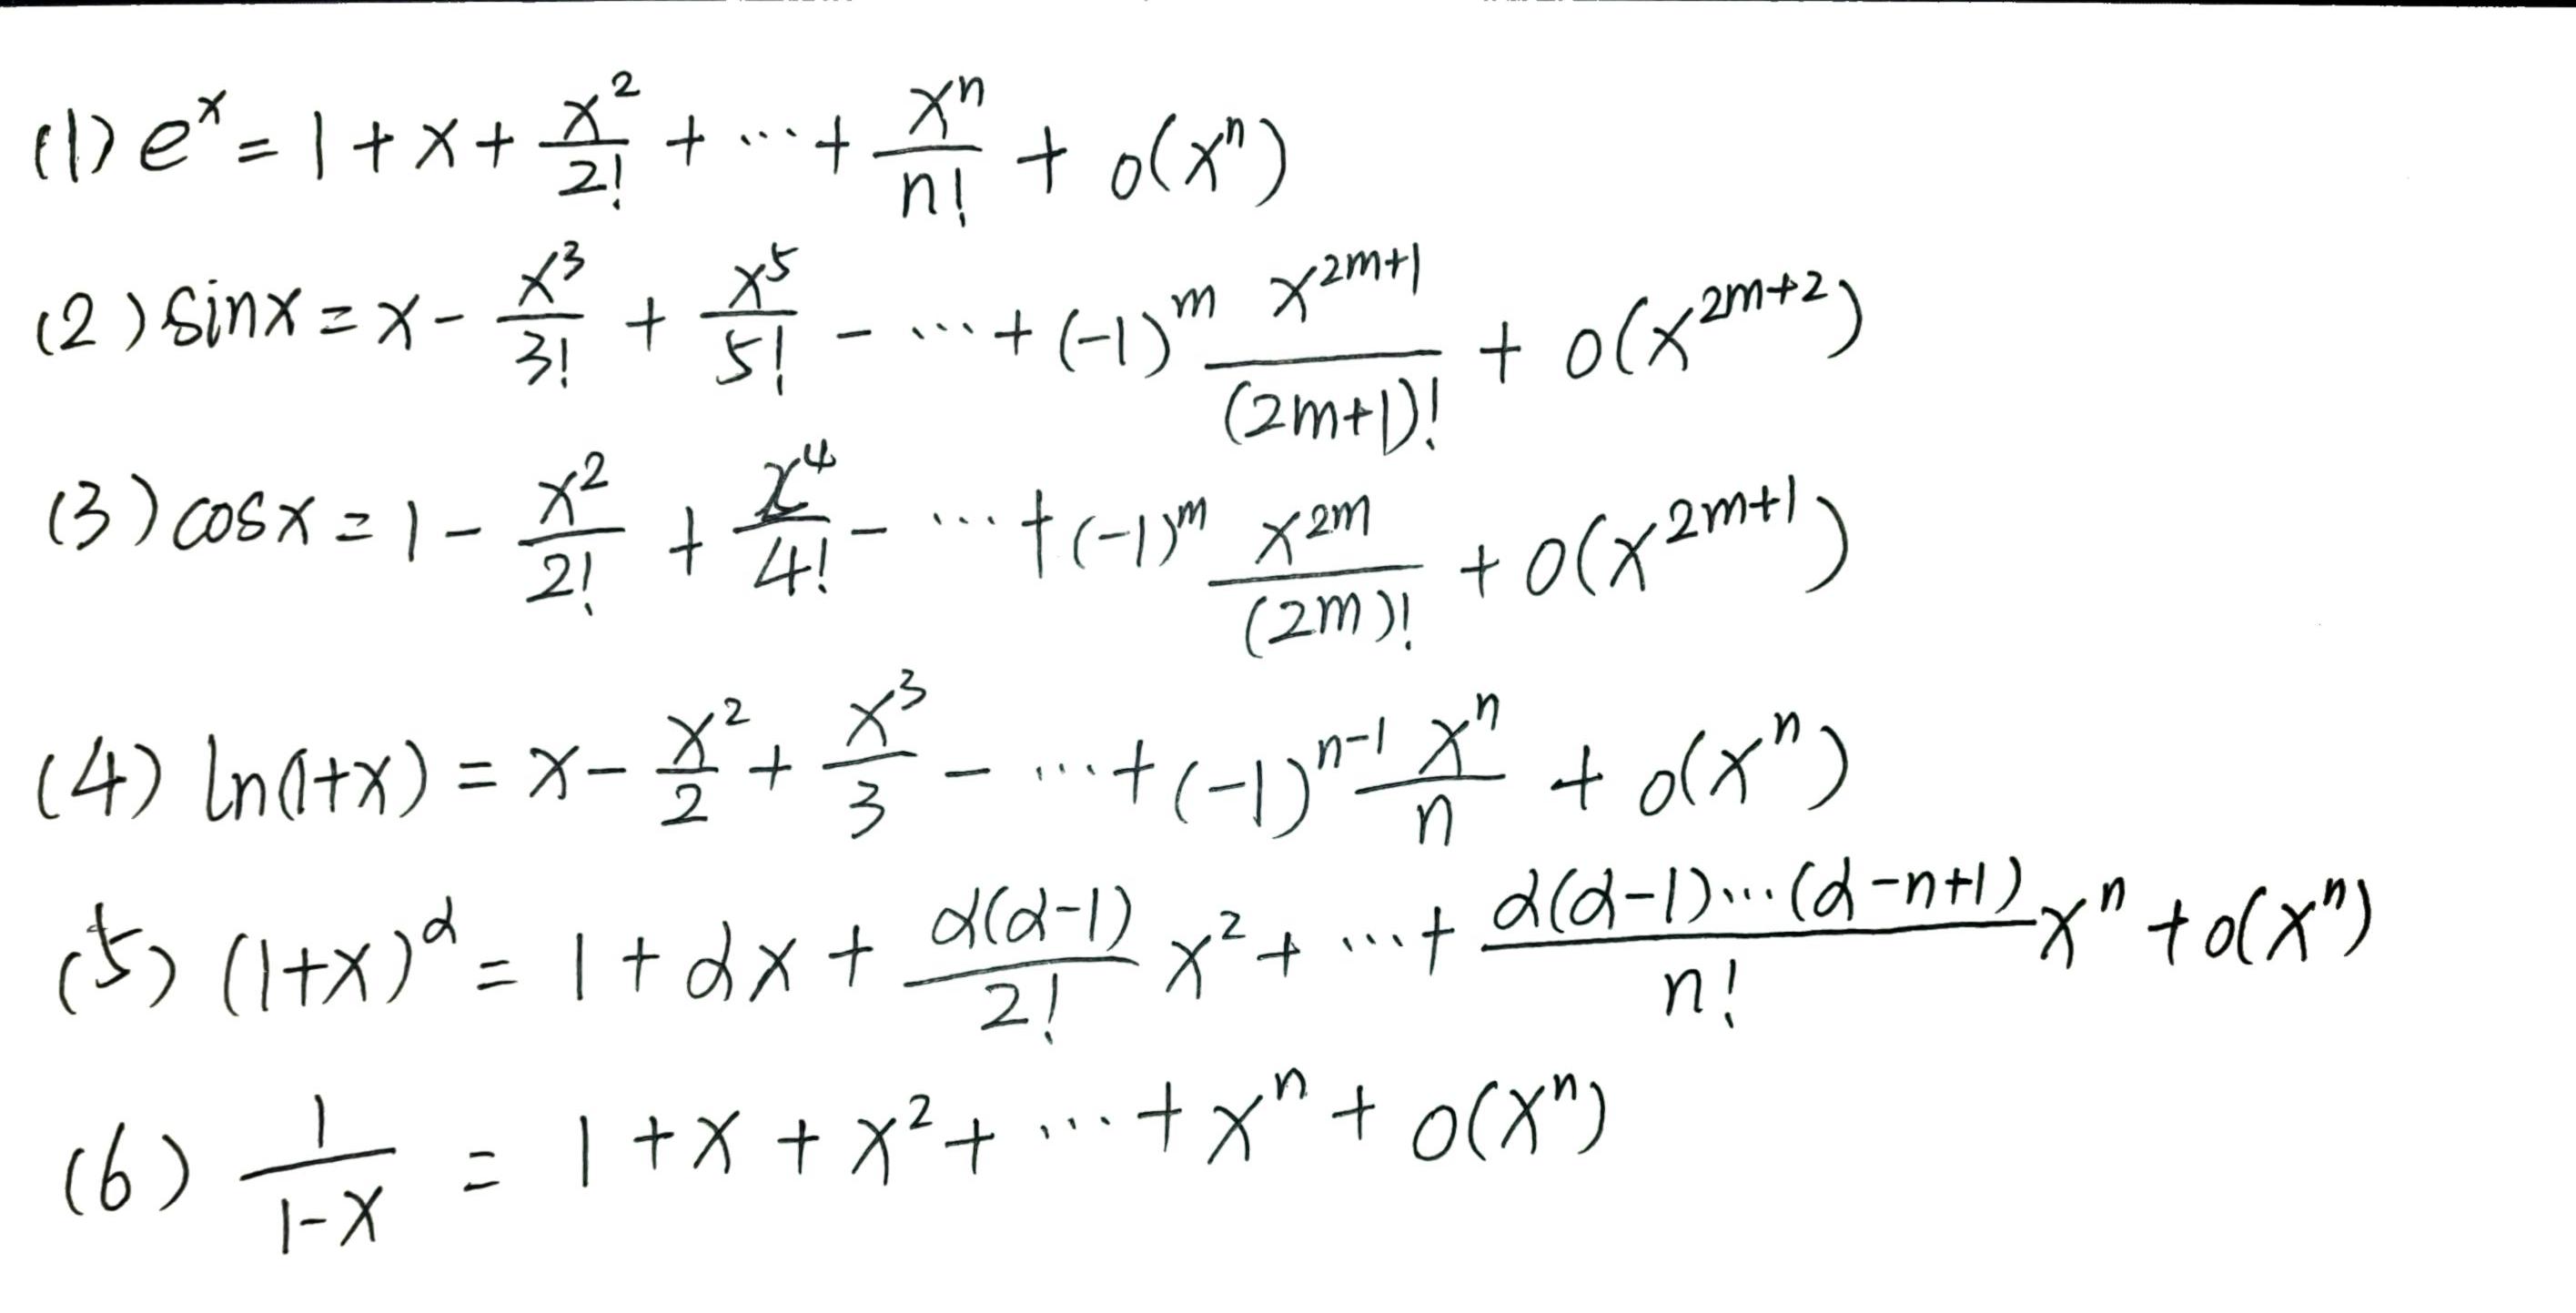 (1) e^x = 1 + x + x^2/2! + ⋯ + x^n/n! + o(x^n)
(2) sinx = x - x^3/3! + x^5/5! - ⋯ + (-1)^m x^{2m+1}/(2m+1)! + o(x^{2m+2})
(3) cosx = 1 - x^2/2! + x^4/4! - ⋯ + (-1)^m x^{2m}/(2m)! + o(x^{2m+1})
(4) ln(1+x) = x - x^2/2 + x^3/3 - ⋯ + (-1)^{n-1} x^n/n + o(x^n)
(5) (1+x)^α = 1 + αx + α(α-1)/2! x^2 + ⋯ + α(α-1)⋯(α-n+1)/n! x^n + o(x^n)
(6) 1/(1-x) = 1 + x + x^2 + ⋯ + x^n + o(x^n)